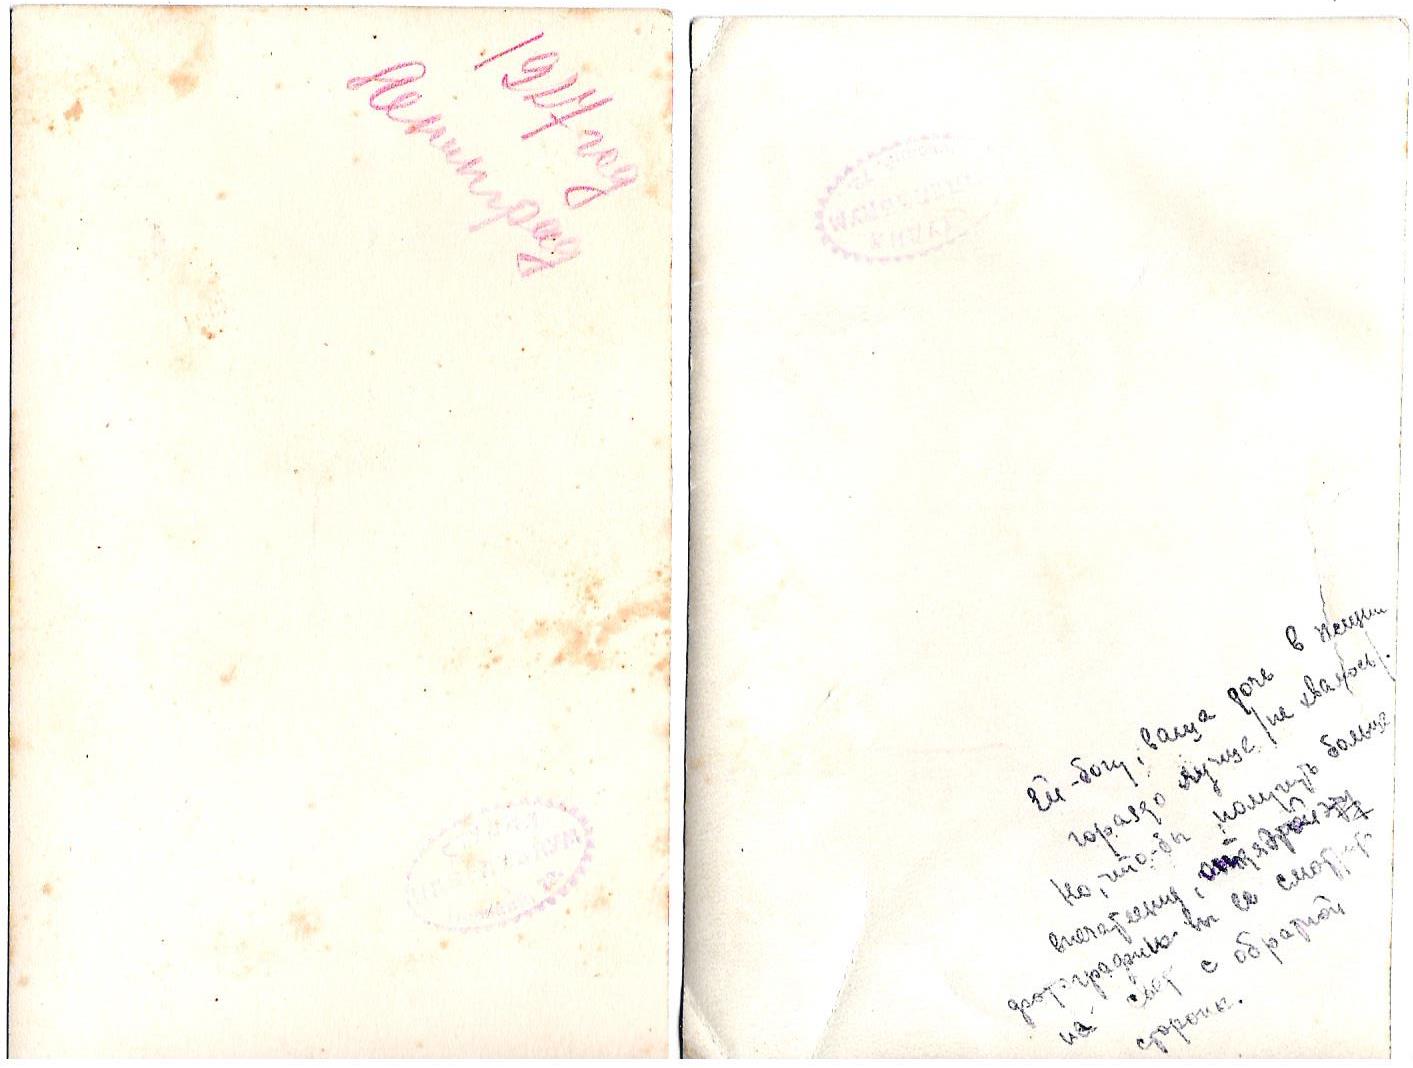 1927 год
Ленинград
Ей-богу, ваша дочь в жизни
гораздо лучше /не хвалюсь/.
Но, что-бы получить больше
впечатления,
фотографию вы ее смотрите
на свет с обратной
стороны.